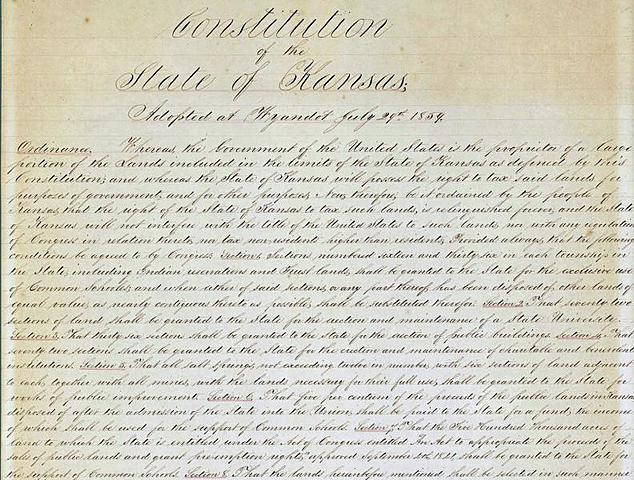 Constitution
of the
State of Kansas,
Adopted at Wyandot July 29th 1859.
Ordinance. Whereas, the Government of the United States is the proprietor of a large
portion of the Lands included in the limits of the State of Kansas as defined by this
Constitution; and whereas the State of Kansas will possess the right to tax said lands for
purposes of government, and for other purposes; Now, therefore, be it ordained by the people of
Kansas, that the right of the State of Kansas to tax such lands, is relinquished forever, and the State
of Kansas will not interfere with the title of the United States to such lands, nor with any regulation
of Congress in relation thereto, nor tax non-residents higher than residents; Provided always, that the following
conditions be agreed to by Congress. Section 1. Sections numbered sixteen and thirty six in each township in
the State, including Indian reservations and Trust lands, shall be granted to the State for the exclusive use
of Common Schools; and when either of said sections, or any part thereof, has been disposed of, other lands of
equal value, as nearly contiguous thereto as possible, shall be substituted therefor. Section 2. That seventy two
sections of land shall be granted to the State for the erection and maintenance of a State University.
Section 3. That thirty six sections shall be granted to the State for the erection of public buildings. Section 4. That
seventy two sections shall be granted to the State for the erection and maintenance of charitable and benevolent
institutions. Section 5. That all salt springs, not exceeding twelve in number, with six sections of land adjacent
to each, together with all mines, with the lands necessary for their full use, shall be granted to the State for
works of public improvement. Section 6. That five per centum of the proceeds of the public lands in Kansas
disposed of after the admission of the State into the Union, shall be paid to the State for a fund, the income
of which shall be used for the support of Common Schools. Section 7. That the Five Hundred thousand acres of
land to which the State is entitled under the Act of Congress entitled An Act to appropriate the proceeds of the
sales of public lands and grant pre-emption rights, approved September 4th 1841, shall be granted to the State for
the support of Common Schools. Section 8. That the lands hereinbefore mentioned shall be selected in such manner